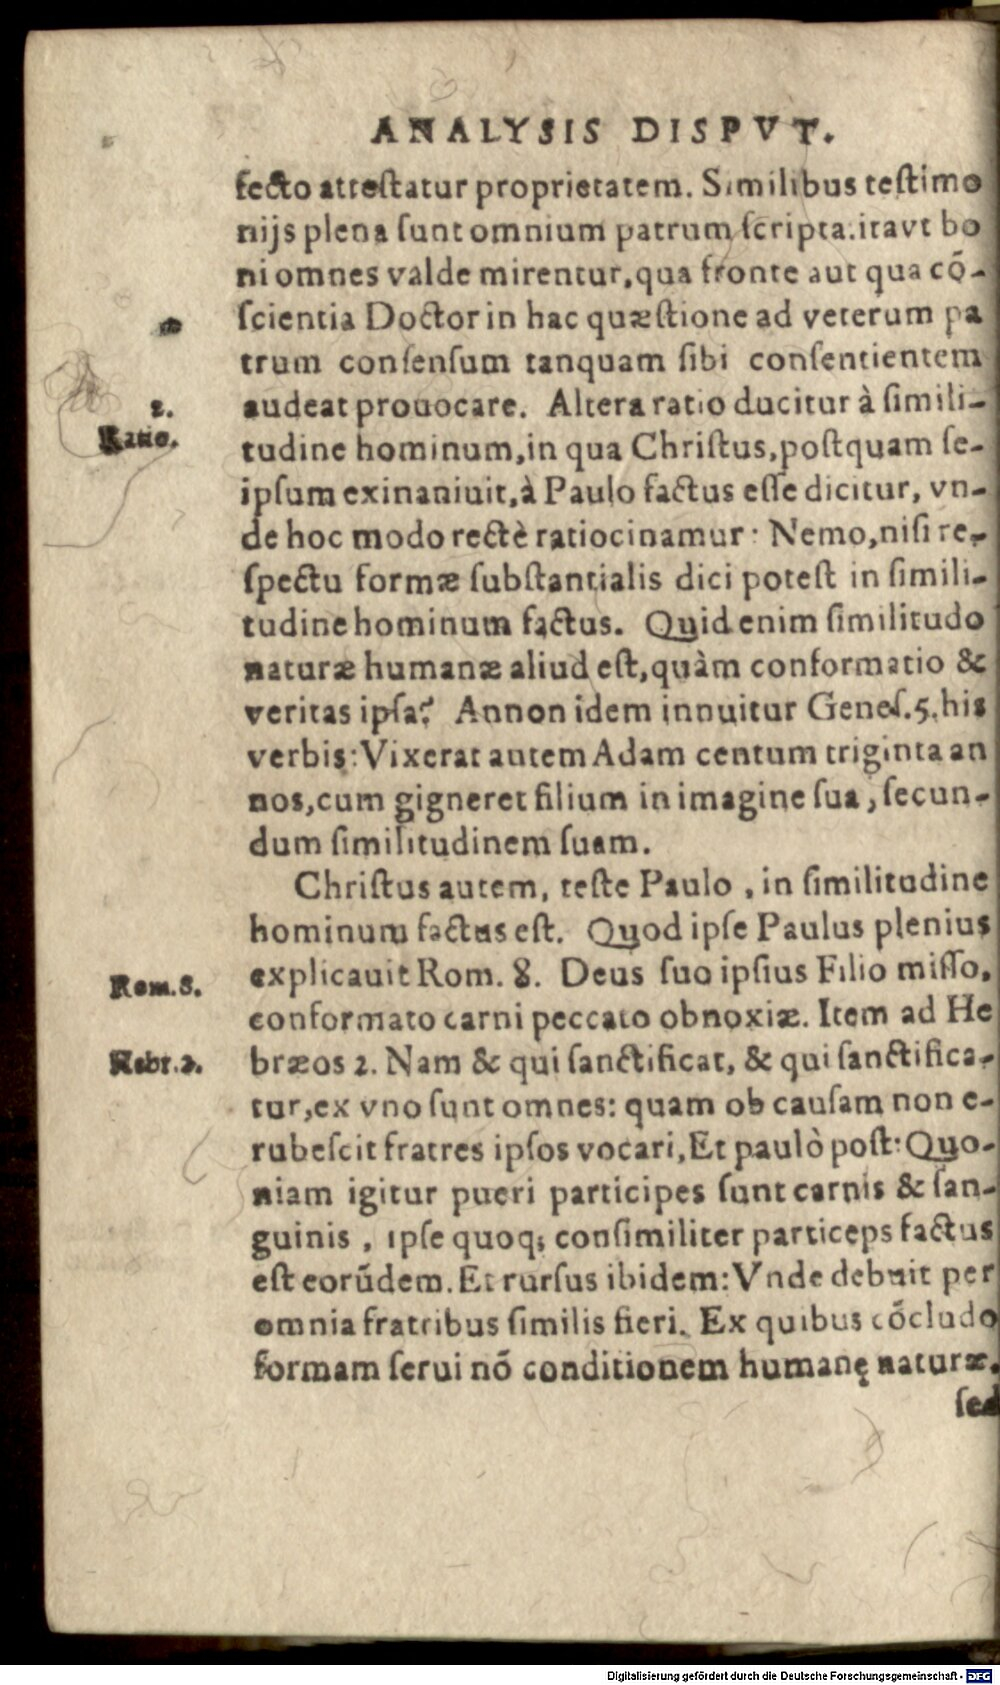 ANALYSIS DISPVT.
fecto attestatur proprietatem. Similibus testimo
nijs plena sunt omnium patrum scripta: itavt bo
ni omnes valde mirentur, qua fronte aut qua cō-
scientia Doctor in hac quæstione ad veterum pa
trum consensum tanquam sibi consentientem
audeat prouocare. Altera ratio ducitur à simili-
2.
Ratio.
tudine hominum, in qua Christus, postquam se-
ipsum exinaniuit, à Paulo factus esse dicitur, vn-
de hoc modo rectè ratiocinamur: Nemo, nisi re-
spectu formæ substantialis dici potest in simili-
tudine hominum factus. Quid enim similitudo
naturæ humanæ aliud est, quàm conformatio &
veritas ipsa? Annon idem innuitur Genes. 5. his
verbis: Vixerat autem Adam centum triginta an
nos, cum gigneret filium in imagine sua, secun-
dum similitudinem suam.
Christus autem, teste Paulo, in similitudine
hominum factus est. Quod ipse Paulus plenius
explicauit Rom. 8. Deus suo ipsius Filio misso,
Rom. 8.
conformato carni peccato obnoxiæ. Item ad He
bræos 2. Nam & qui sanctificat, & qui sanctifica-
Hebr. 2.
tur, ex vno sunt omnes: quam ob causam non e-
rubescit fratres ipsos vocari, Et paulò post: Quo-
niam igitur pueri participes sunt carnis & san-
guinis, ipse quoq; consimiliter particeps factus
est eorūdem. Et rursus ibidem: Vnde debuit per
omnia fratribus similis fieri. Ex quibus cōcludo
formam serui nō conditionem humanę naturæ,
sed
Digitalisierung gefördert durch die Deutsche Forschungsgemeinschaft - DFG